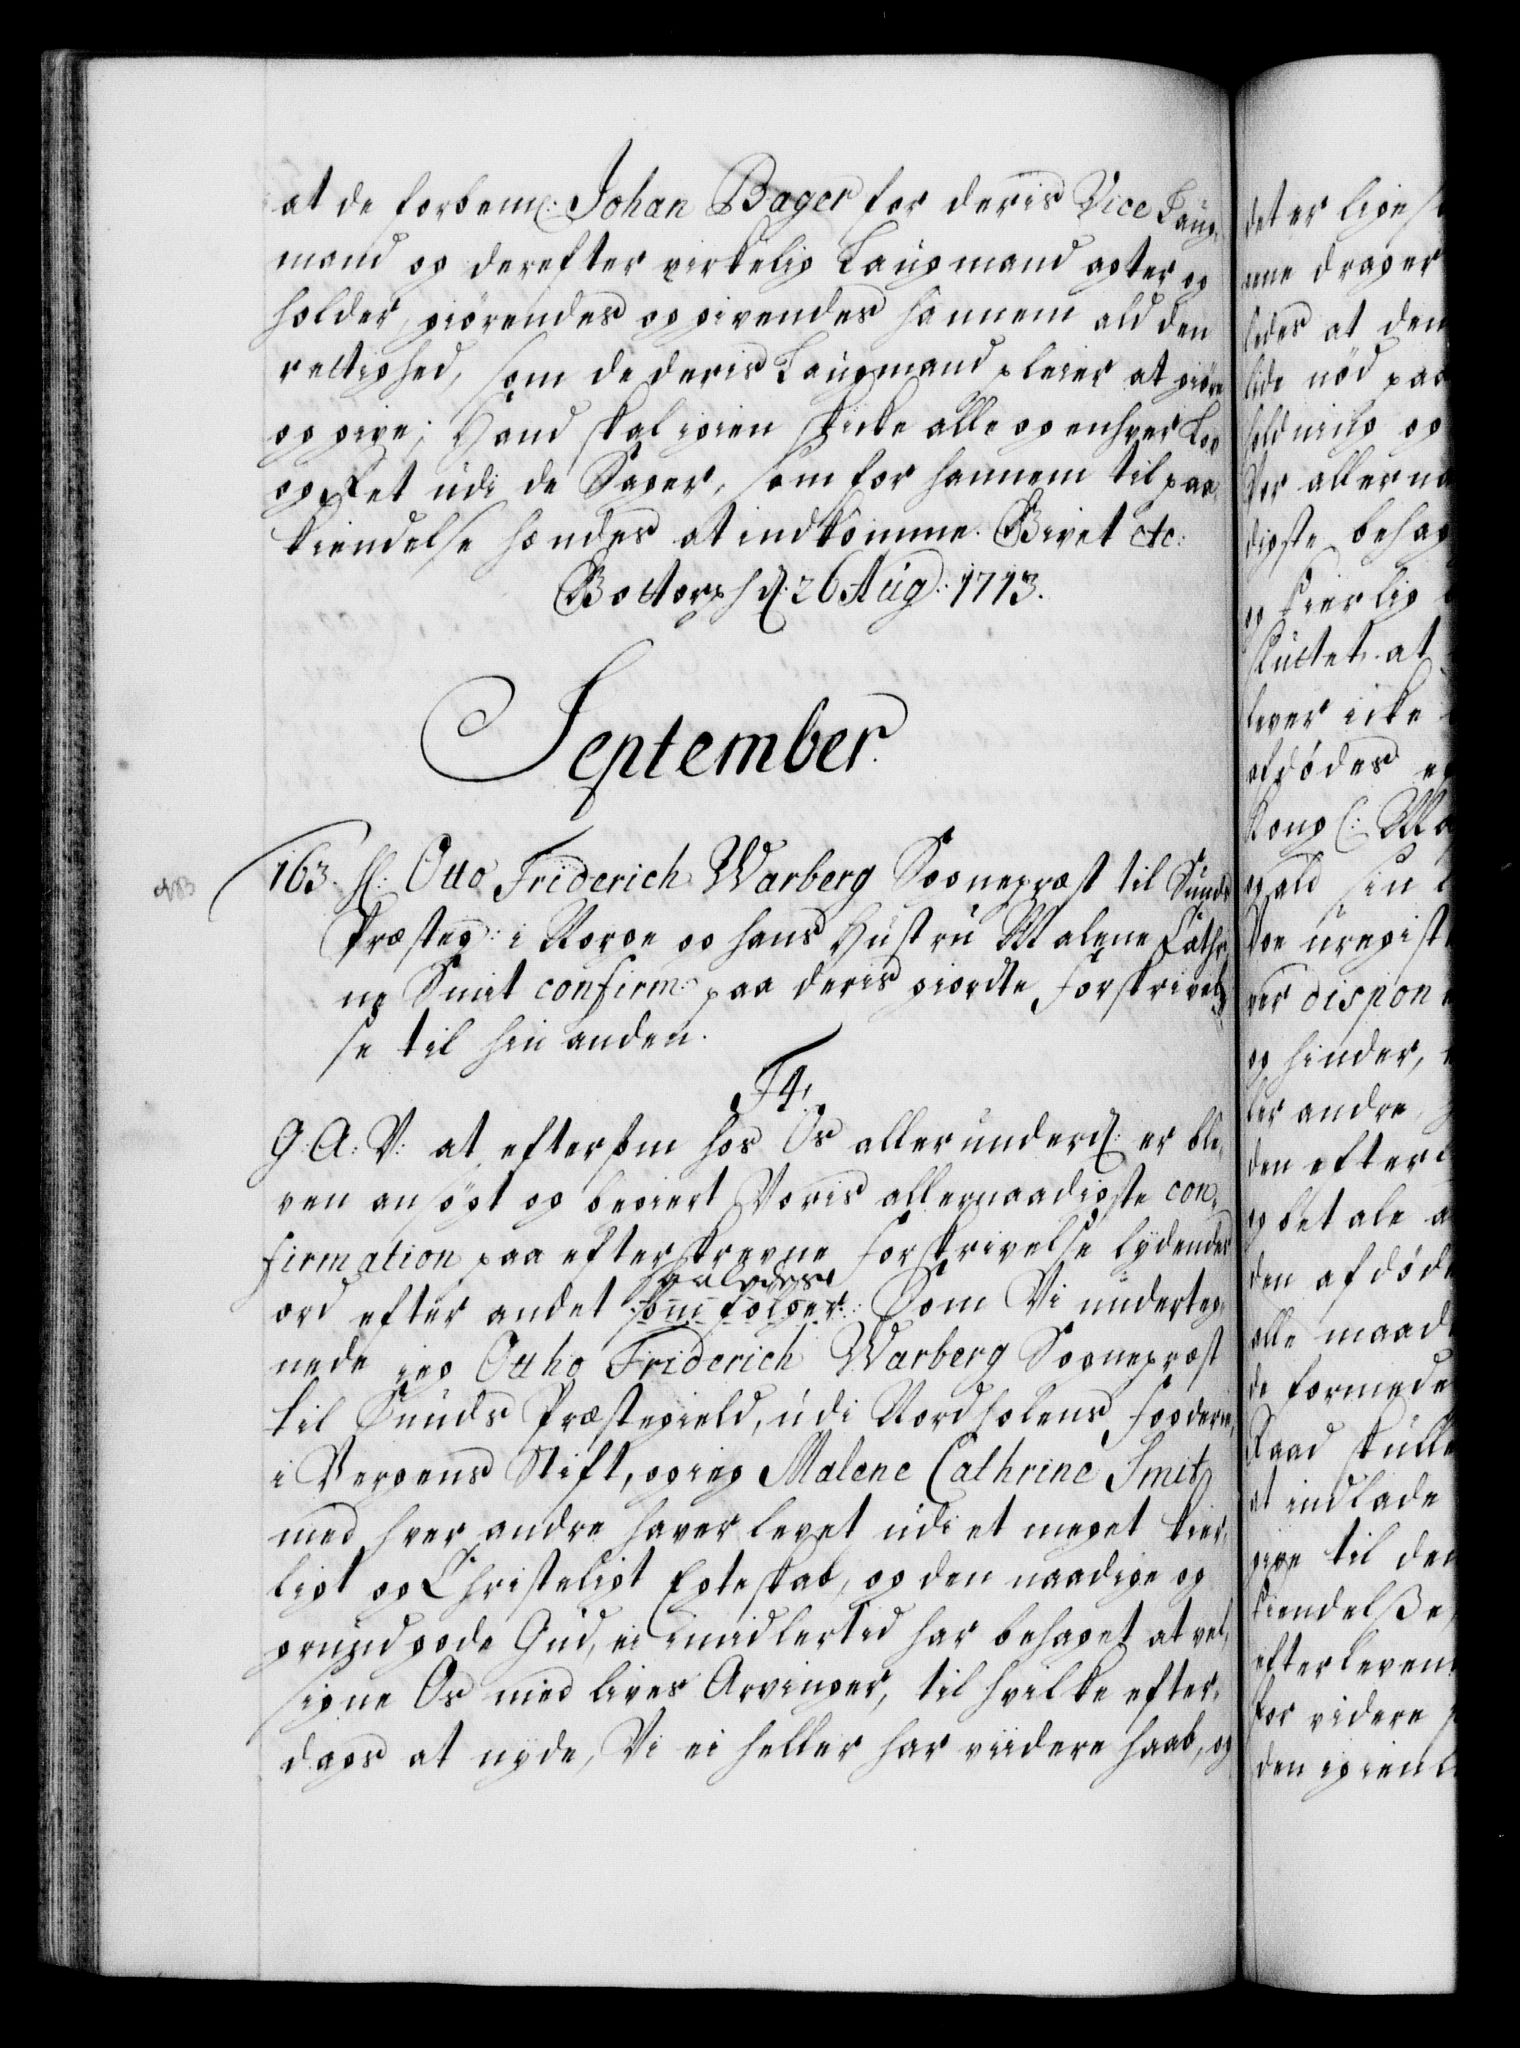 at de forbemt: Johan Bager for deris Vice Laug-
mand og derefter virkelig Laugmand agter og
holder, giørendes og givendes hannem ald den
rettighed, som de deris Laugmand pleier at giøre
og give; Hand skal igien skicke alle og enhver Lov
og Ret udi de Sager, som for hannem til paa-
kiendelse hendes at indkomme. Givet etc:
Gottorph d: 26 Aug: 1713.
September.
163. Hr: Otto Friderich Warberg Sognepræst til Sunds
Præsteg: i Norge og hans Hustru Malene Cathri-
ne Smit confirm: paa deris giordte Forskrivel-
se til hin anden.
F4.
G: A: V: at eftersom hos Os allerunderd: er ble-
ven ansøgt og begiert Voris allernaadigste con-
firmation paa efterskrevne Forskrivelse lydendes
ord efter andet som følger: Som Vi underteg-
saaledes
nede jeg Ottho Friderich Warberg Sognepræst
til Sunds Præstegield, udi Nordholens Fogderie,
i Bergens Stift, og jeg Malene Cathrine Smit
med hver andre haver levet udi et meget kier-
ligt og Christeligt Egteskab, og den naadige og
grundgode Gud, ei imidlertid har behaget at vel-
signe Os med lives Arvinger, til hvilke efter-
dags at nyde, Vi ei heller har viidere haab, og
det er ligesa
nne drager
ledes at den
lide nød paa
holdning og
Vor allerna
digste behag
og kierlig
sluttet at
lever icke
afdødes
Kong:
og ald sin
Voe uregist
ver dispon
og hinder,
ler andre
den efter
og betale a
den afdød
alle maad
de formede
Raad skulle
at indlade
give til den
kiendelsße
efterleven
for videre
den igien